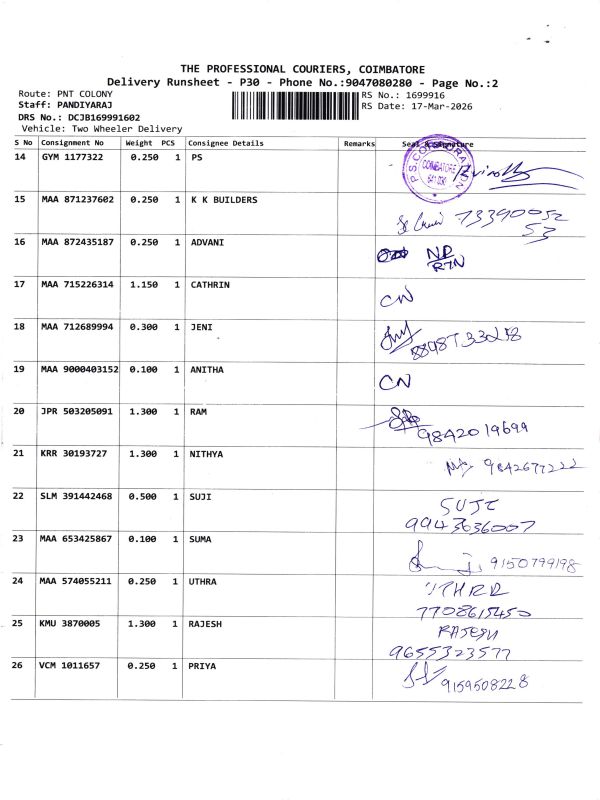 THE PROFESSIONAL COURIERS, COIMBATORE
Delivery Runsheet - P30 - Phone No.:9047080280 - Page No.:2
Route: PNT COLONY
RS No.: 1699916
Staff: PANDIYARAJ
RS Date: 17-Mar-2026
DRS No.: DCJB169991602
Vehicle: Two Wheeler Delivery
S No Consignment No Weight PCS Consignee Details Remarks Seal & Signature
14 GYM 1177322 0.250 1 PS
P.S. CORPORATION COIMBATORE
15 MAA 871237602 0.250 1 K K BUILDERS
7339005253
16 MAA 872435187 0.250 1 ADVANI
ND
RTN
17 MAA 715226314 1.150 1 CATHRIN
CN
18 MAA 712689994 0.300 1 JENI
19 MAA 9000403152 0.100 1 ANITHA
CN
20 JPR 503205091 1.300 1 RAM
9842019699
21 KRR 30193727 1.300 1 NITHYA
9842677222
22 SLM 391442468 0.500 1 SUJI
SUJI
9943636007
23 MAA 653425867 0.100 1 SUMA
9150799198
24 MAA 574055211 0.250 1 UTHRA
UTHRA
7708615450
25 KMU 3870005 1.300 1 RAJESH
RAJESH
9655323577
26 VCM 1011657 0.250 1 PRIYA
9159508228